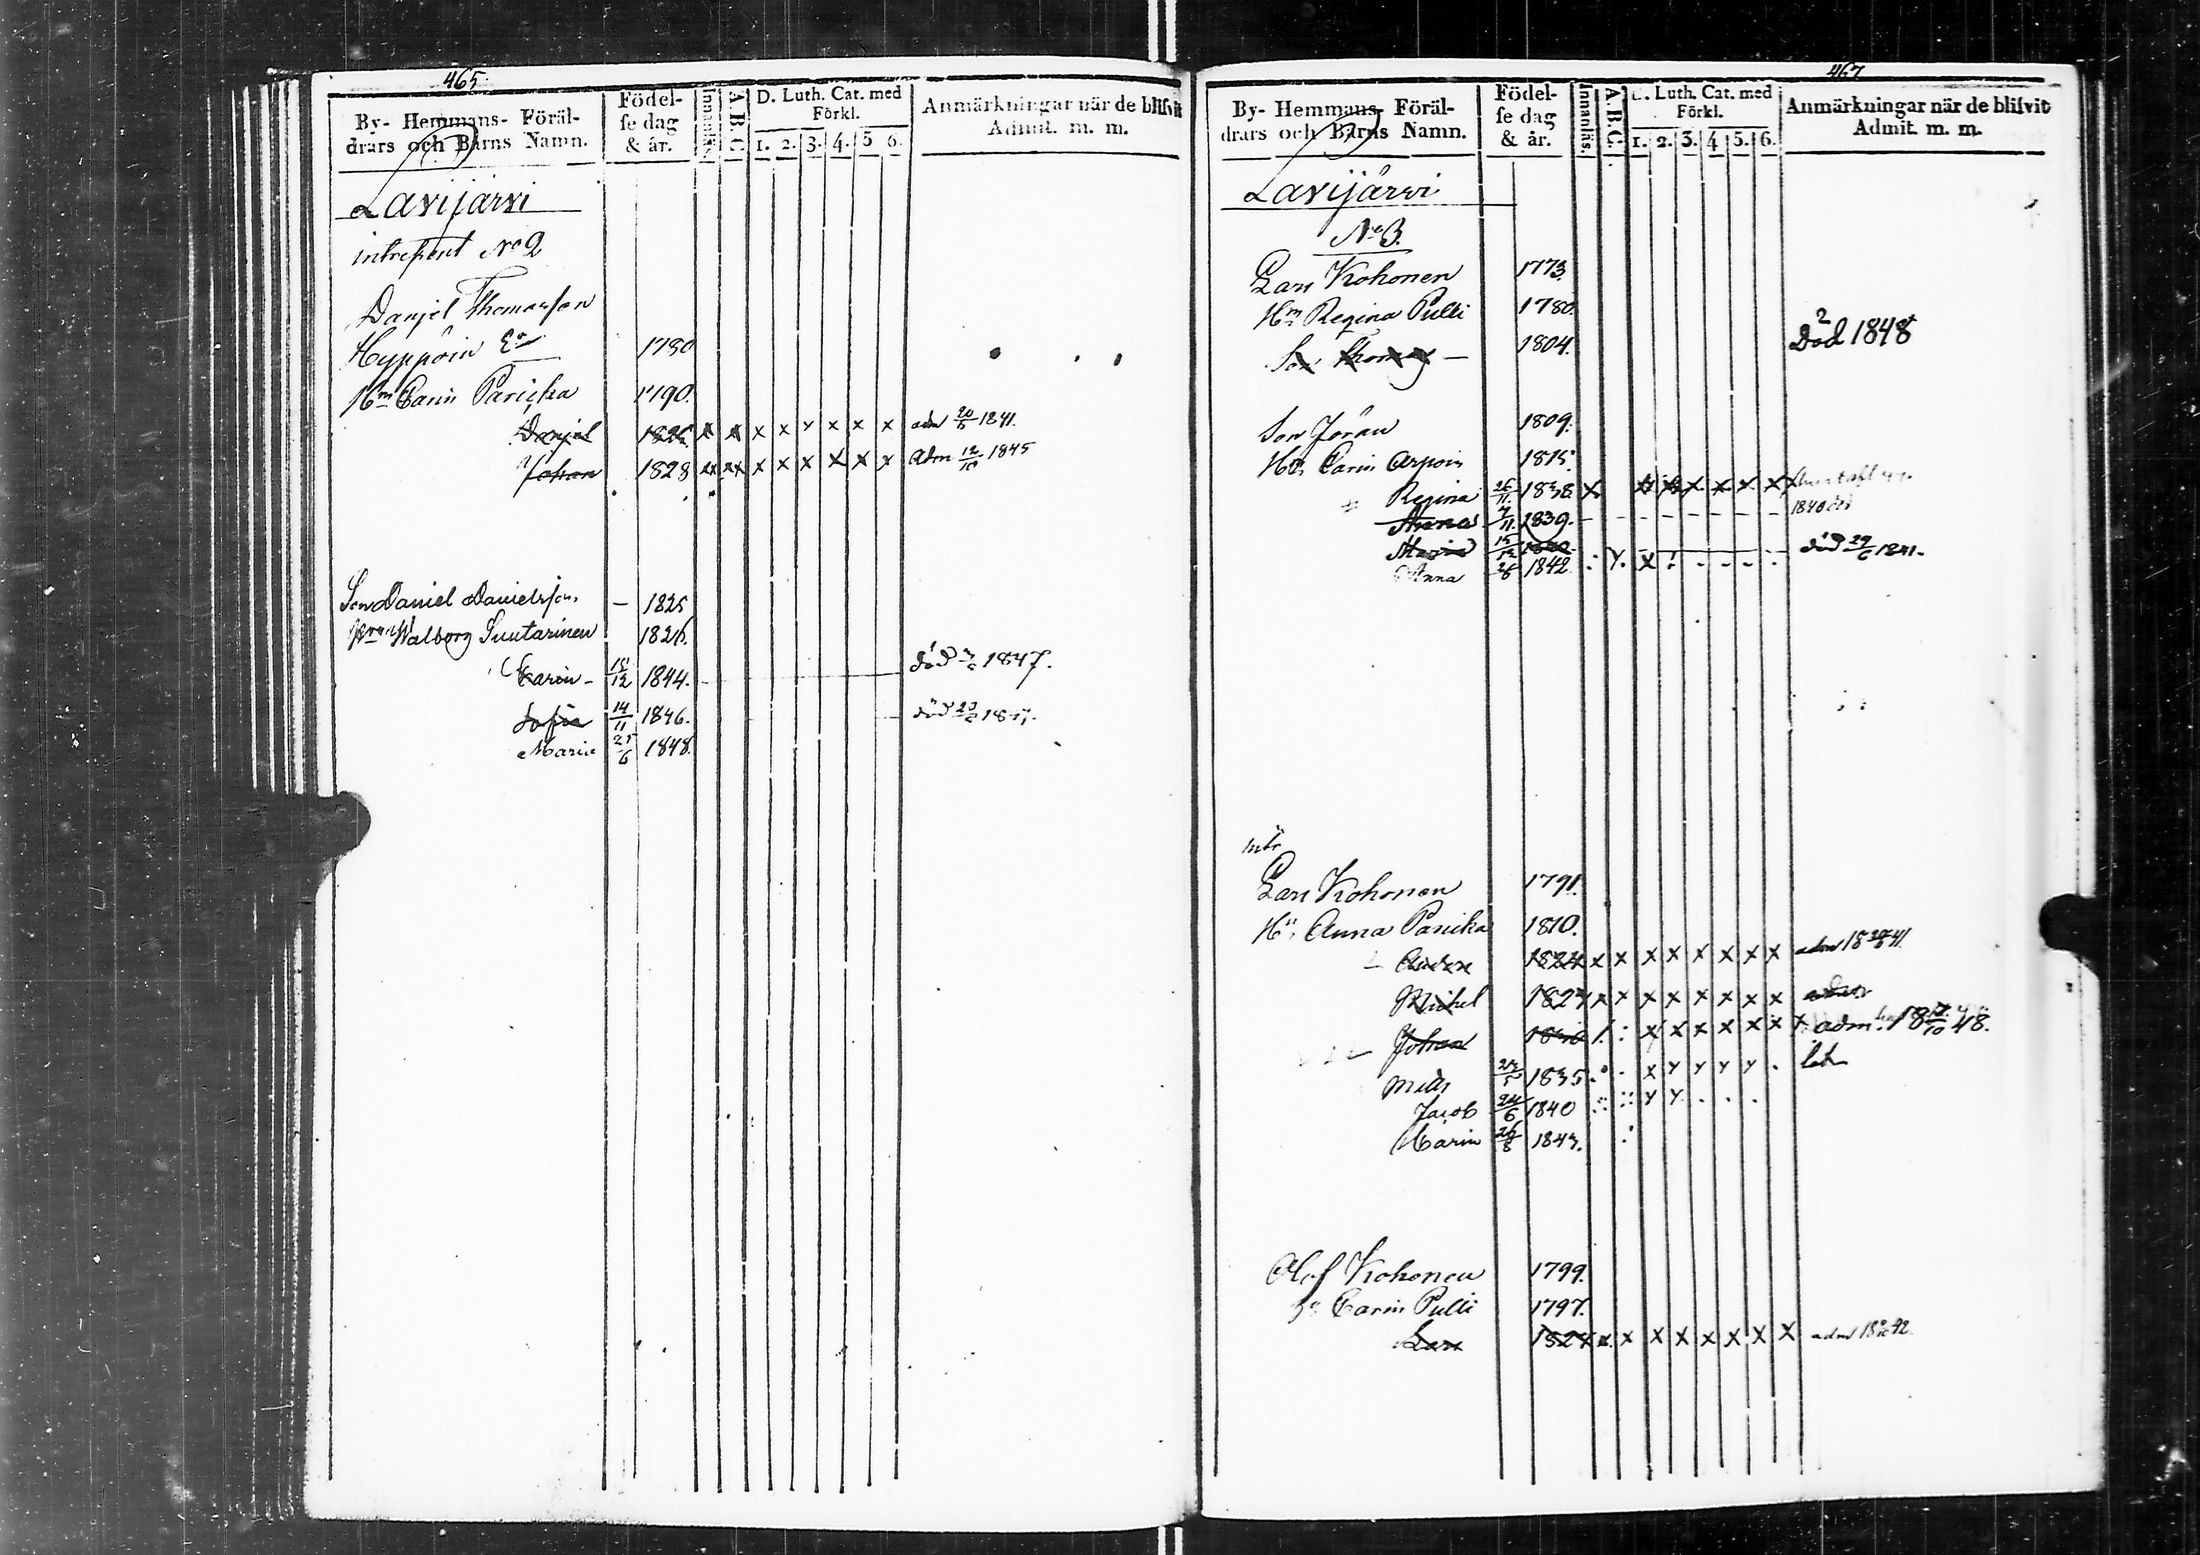 465
By- Hemmans- Föräl-
drars och Barns Namn.
Födel-
se dag
& år.
Innanläs.
A.B.C.
D. Luth. Cat. med
Förkl.
1. 2. 3. 4. 5 6.
Anmärkningar när de blifvit
Admit. m. m.
Lavijärvi
No 2
Danjel Thomasson
Hyppöin Eo 1780
Hm Carin Paricka 1790.
Danjel 1826 x x x x x x x x adm 1841.
Johan 1828 xx xx x x x x x x Adm 12/10 1845
Son Daniel Danielsson — 1825
Walborg Suutarinen 1826.
Carin - 15/12 1844. död 1847.
Sofia 14/11 1846. död
Maria 25/6 1848.
467
By- Hemmans- Föräl-
drars och Barns Namn.
Födel-
se dag
& år.
Innanläs.
A.B.C.
D. Luth. Cat. med
Förkl.
1. 2. 3. 4 5. 6.
Anmärkningar när de blifvit
Admit. m. m.
Lavijärvi
No 3.
Lars Kohonen 1773.
Hm Regina Pulli 1780.
Son Thomas — 1804. Död 1848
Son Jöran 1809.
Hu Carin Arpoin 1815.
Regina 26/11. 1838 x x x x x x x
7/11. 1839. 1840
Maria 15/12 död 29/6 1841.
Anna 1842
intr
Lars Kohonen 1791.
Hu Anna Paricka 1810.
1824 x x x x x x x x adm
Michel 1827 x x x x x x x x
Johan x x x x x x x adm. 18 17/10 48.
Mats 1835.
Jacob 24/6 1840
Carin 26/8 1843.
Olof Kohonen 1799.
Hu Carin Pulli 1797.
Lars 1824 x x x x x x x x adm